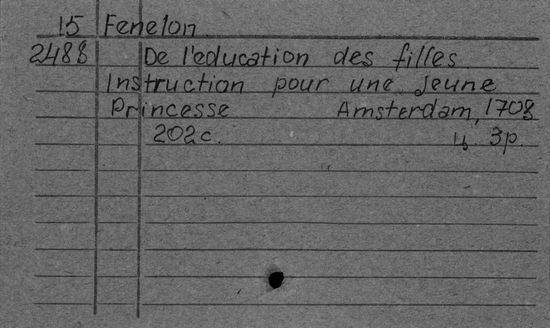 15 Fenelon
2488 De l'education des filles.
Instruction pour une jeune
Princesse Amsterdam, 1708
202с. ц. 3р.